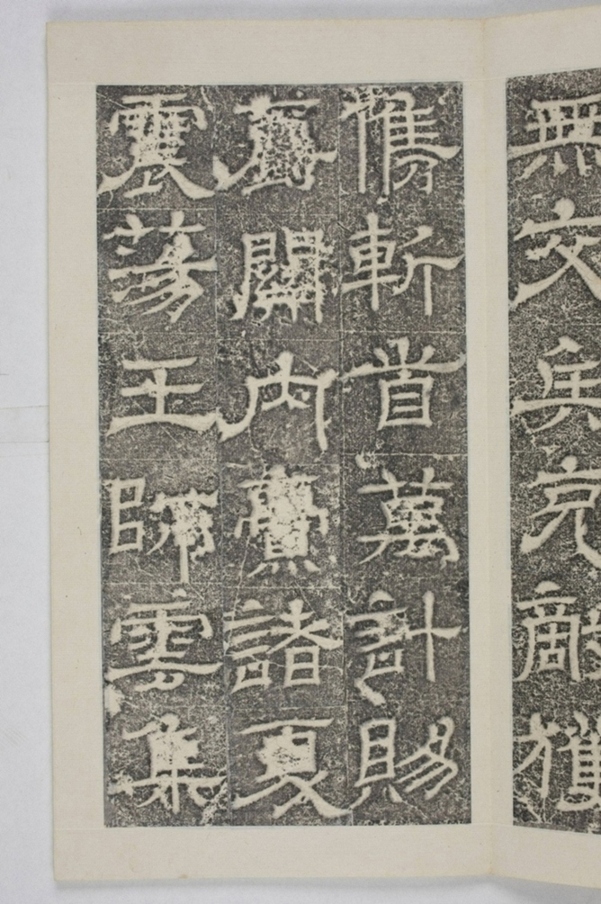 無交兵克敵獲
儁斬首萬計賜
爵關內諸夏
震蕩王師雲集